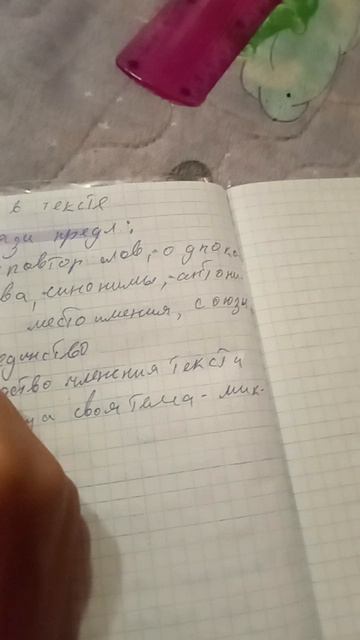 в тексте
язи предл:
повтор слов, - однока
ва, - синонимы, - антони
местоимения, союзи,
единство
дство членения текста
на своя тема - мик-